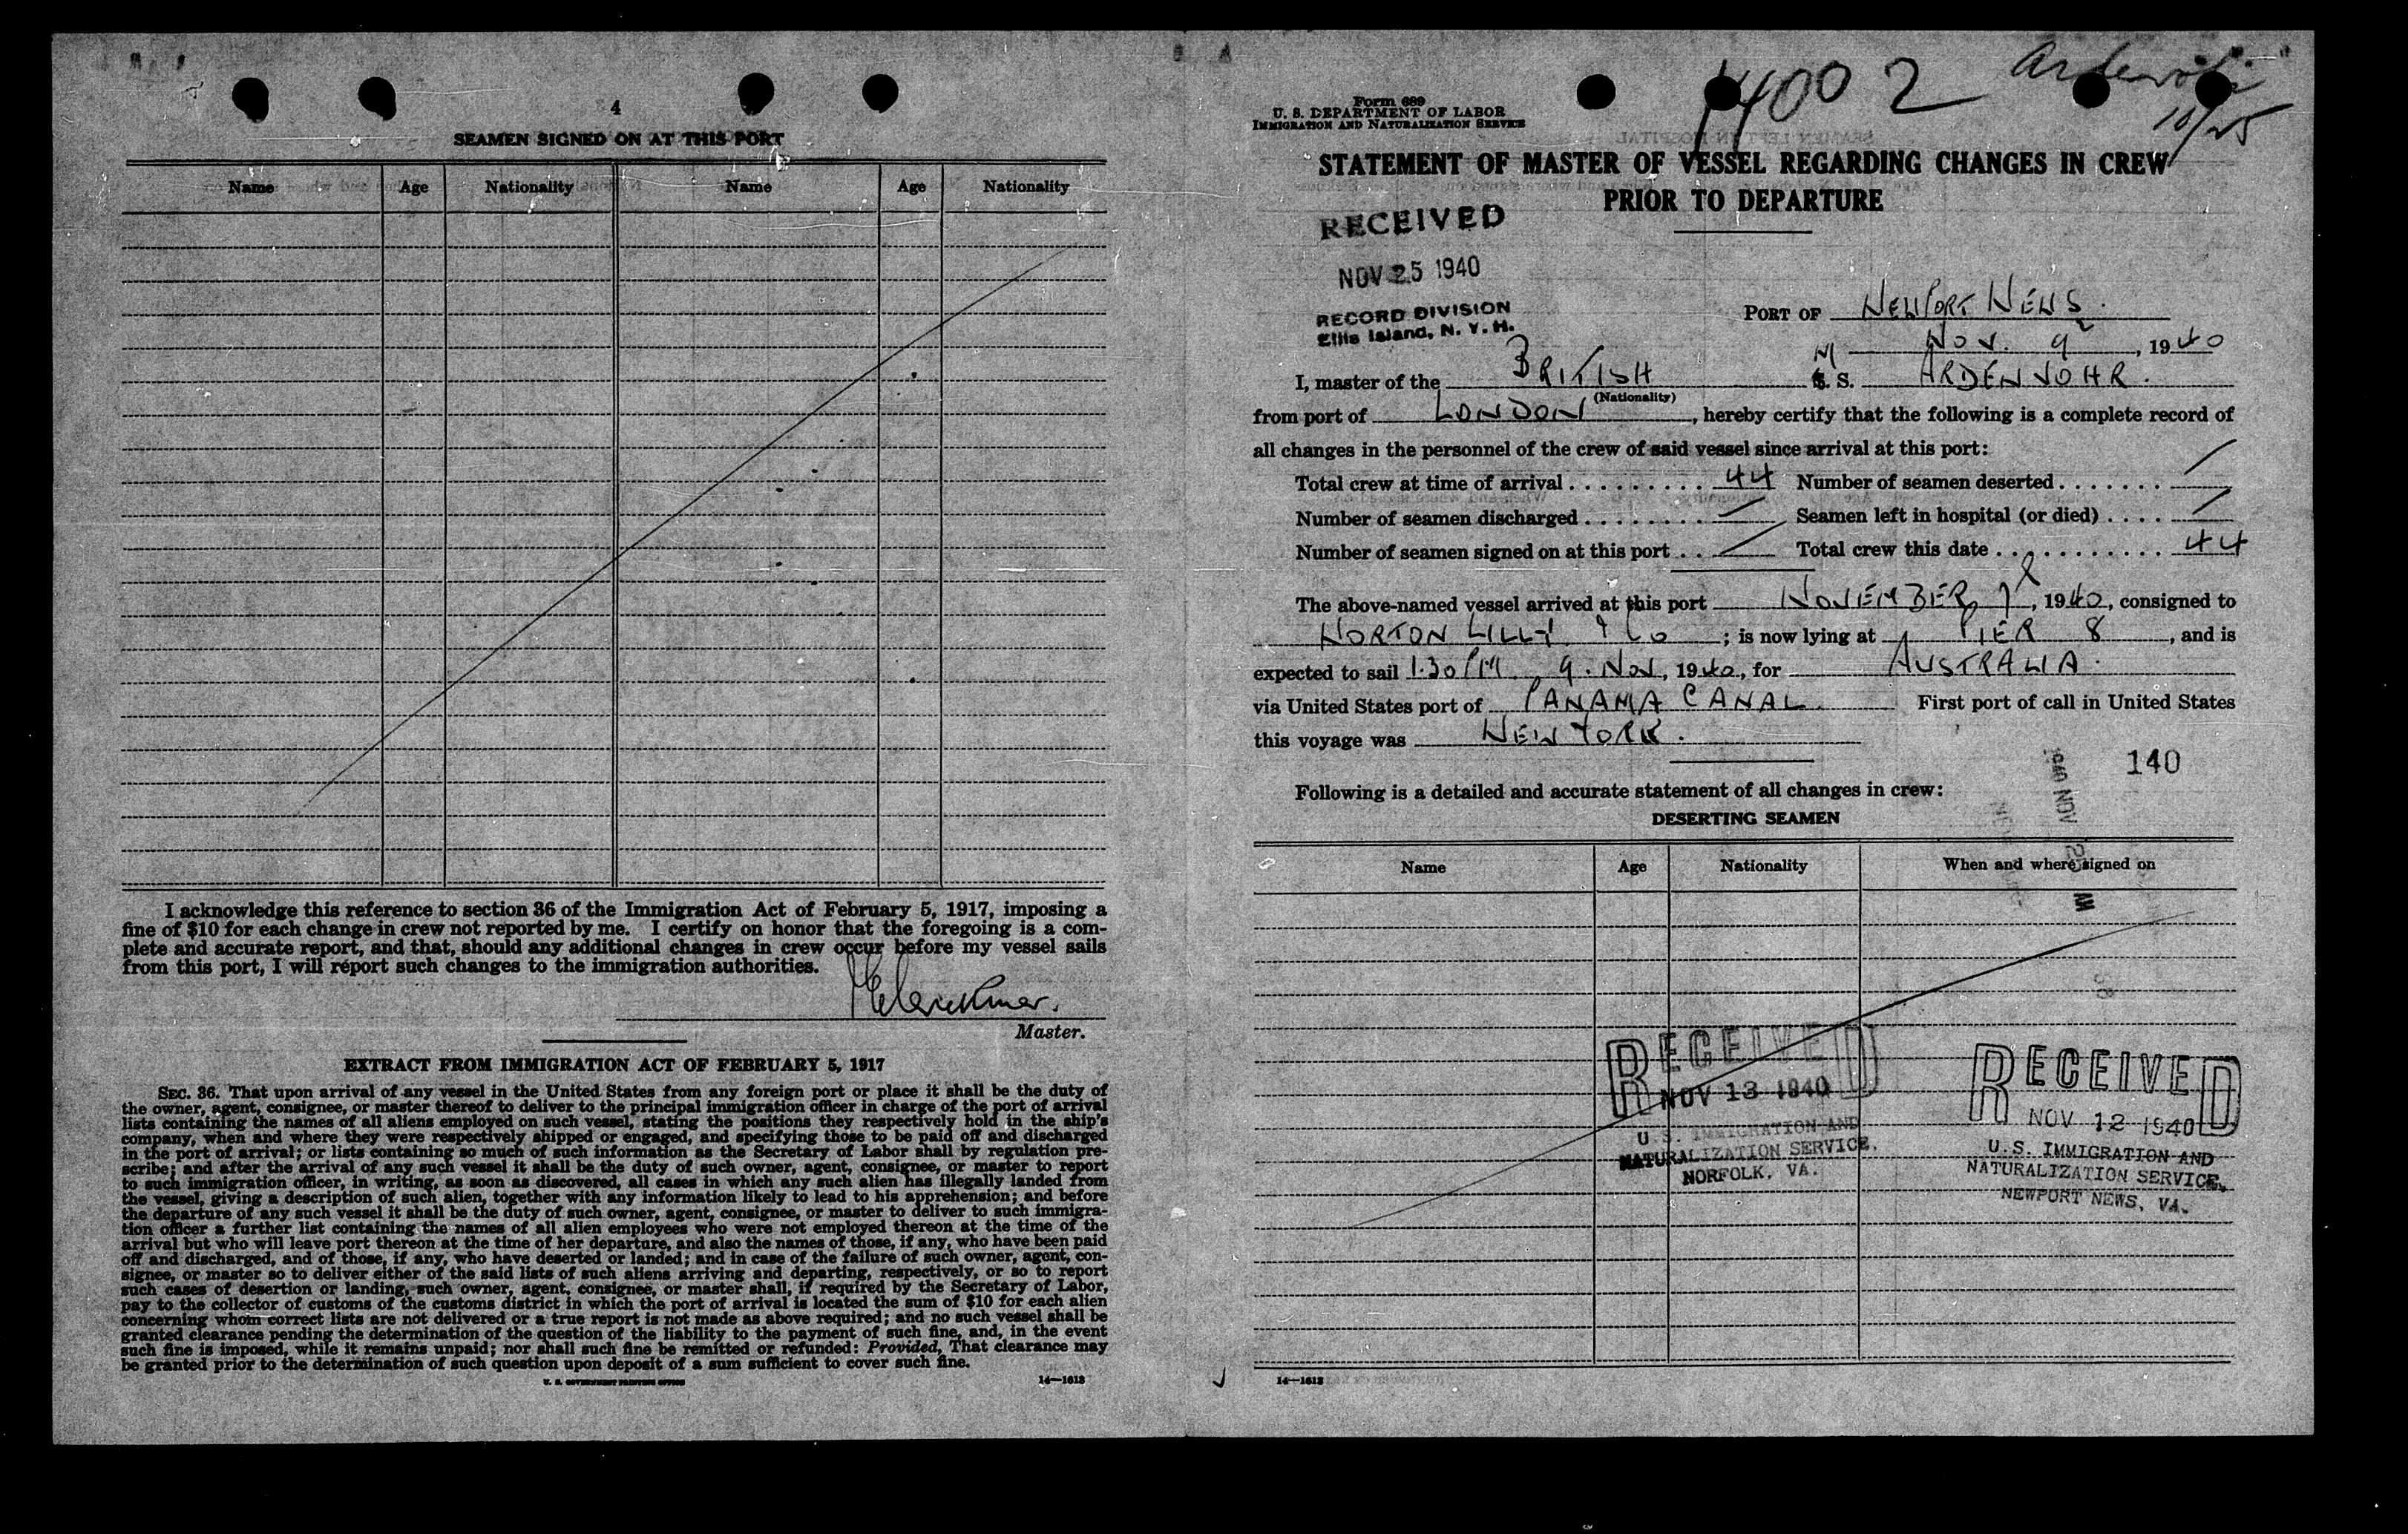 4
SEAMEN SIGNED ON AT THIS PORT
Name Age Nationality Name Age Nationality
I acknowledge this reference to section 36 of the Immigration Act of February 5, 1917, imposing a
fine of $10 for each change in crew not reported by me. I certify on honor that the foregoing is a com-
plete and accurate report, and that, should any additional changes in crew occur before my vessel sails
from this port, I will report such changes to the immigration authorities.
Master.
EXTRACT FROM IMMIGRATION ACT OF FEBRUARY 5, 1917
SEC. 36. That upon arrival of any vessel in the United States from any foreign port or place it shall be the duty of
the owner, agent, consignee, or master thereof to deliver to the principal immigration officer in charge of the port of arrival
lists containing the names of all aliens employed on such vessel, stating the positions they respectively hold in the ship's
company, when and where they were respectively shipped or engaged, and specifying those to be paid off and discharged
in the port of arrival; or lists containing so much of such information as the Secretary of Labor shall by regulation pre-
scribe; and after the arrival of any such vessel it shall be the duty of such owner, agent, consignee, or master to report
to such immigration officer, in writing, as soon as discovered, all cases in which any such alien has illegally landed from
the vessel, giving a description of such alien, together with any information likely to lead to his apprehension; and before
the departure of any such vessel it shall be the duty of such owner, agent, consignee, or master to deliver to such immigra-
tion officer a further list containing the names of all alien employees who were not employed thereon at the time of the
arrival but who will leave port thereon at the time of her departure, and also the names of those, if any, who have been paid
off and discharged, and of those, if any, who have deserted or landed; and in case of the failure of such owner, agent, con-
signee, or master so to deliver either of the said lists of such aliens arriving and departing, respectively, or so to report
such cases of desertion or landing, such owner, agent, consignee, or master shall, if required by the Secretary of Labor,
pay to the collector of customs of the customs district in which the port of arrival is located the sum of $10 for each alien
concerning whom correct lists are not delivered or a true report is not made as above required; and no such vessel shall be
granted clearance pending the determination of the question of the liability to the payment of such fine, and, in the event
such fine is imposed, while it remains unpaid; nor shall such fine be remitted or refunded: Provided, That clearance may
be granted prior to the determination of such question upon deposit of a sum sufficient to cover such fine.
U. S. GOVERNMENT PRINTING OFFICE 14—1613
14002
10/25
Form 689
U. S. DEPARTMENT OF LABOR
IMMIGRATION AND NATURALIZATION SERVICE
STATEMENT OF MASTER OF VESSEL REGARDING CHANGES IN CREW
PRIOR TO DEPARTURE
RECEIVED
NOV 25 1940
RECORD DIVISION
Ellis Island, N. Y. H.
PORT OF NEWPORT NEWS.
NOV. 9, 1940
I, master of the BRITISH M S. ARDENVOHR.
(Nationality)
from port of LONDON, hereby certify that the following is a complete record of
all changes in the personnel of the crew of said vessel since arrival at this port:
Total crew at time of arrival 44 Number of seamen deserted /
Number of seamen discharged / Seamen left in hospital (or died) /
Number of seamen signed on at this port / Total crew this date 44
The above-named vessel arrived at this port NOVEMBER, 1940, consigned to
NORTON LILLY & Co; is now lying at PIER 8, and is
expected to sail 1.30 PM 9. Nov, 1940, for AUSTRALIA.
via United States port of PANAMA CANAL. First port of call in United States
this voyage was NEW YORK.
140
1940 NOV
Following is a detailed and accurate statement of all changes in crew:
DESERTING SEAMEN
Name Age Nationality When and where signed on
RECEIVED
NOV 13 1940
U. S. IMMIGRATION AND
NATURALIZATION SERVICE.
NORFOLK, VA.
RECEIVED
NOV 12 1940
U. S. IMMIGRATION AND
NATURALIZATION SERVICE,
NEWPORT NEWS, VA.
14—1613